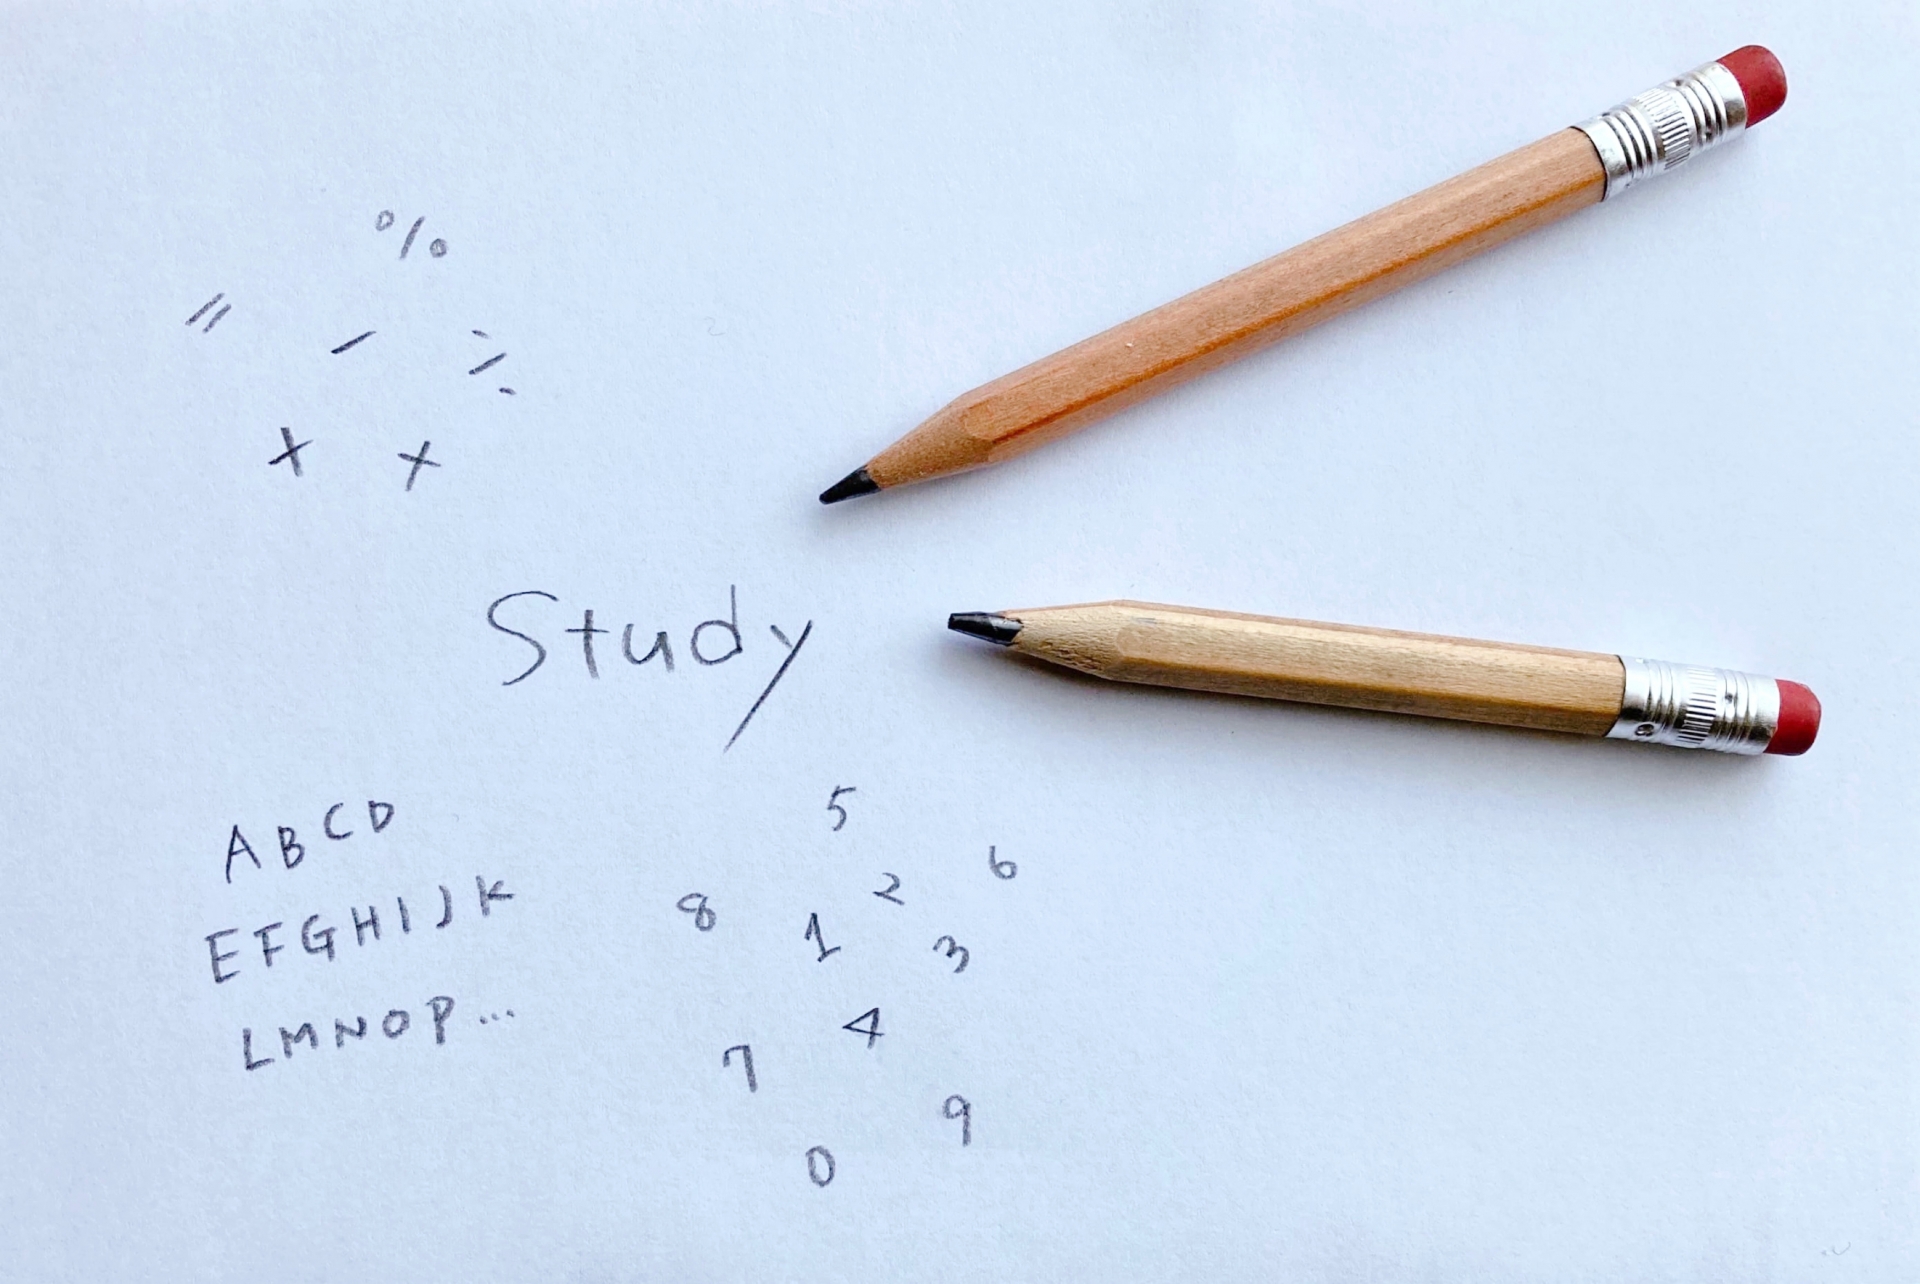 %
= - ÷
+ ×
Study
ABCD
EFGHIJK
LMNOP...
5
6
8 2
1 3
4
7
9
0